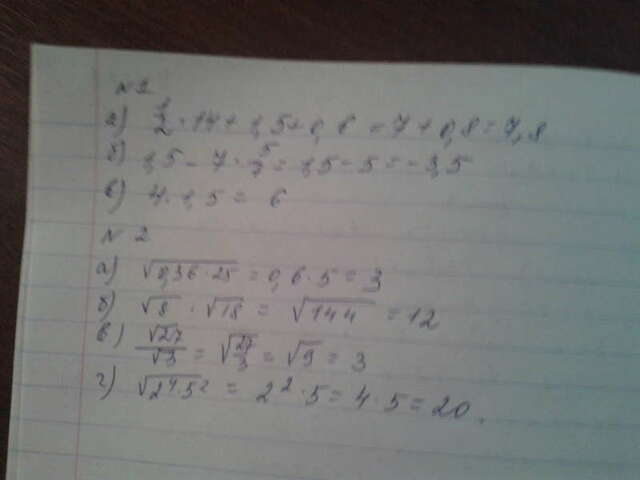 №1
а) 1/2 · 14 + 1,5 + 0,6 = 7 + 0,8 = 7,8
б) 1,5 - 7 · 5/7 = 1,5 - 5 = -3,5
в) 4 · 1,5 = 6
№2
а) √0,36·25 = 0,6·5 = 3
б) √8 · √18 = √144 = 12
в) √27/√3 = √27/3 = √9 = 3
г) √2⁴·5² = 2²·5 = 4·5 = 20.